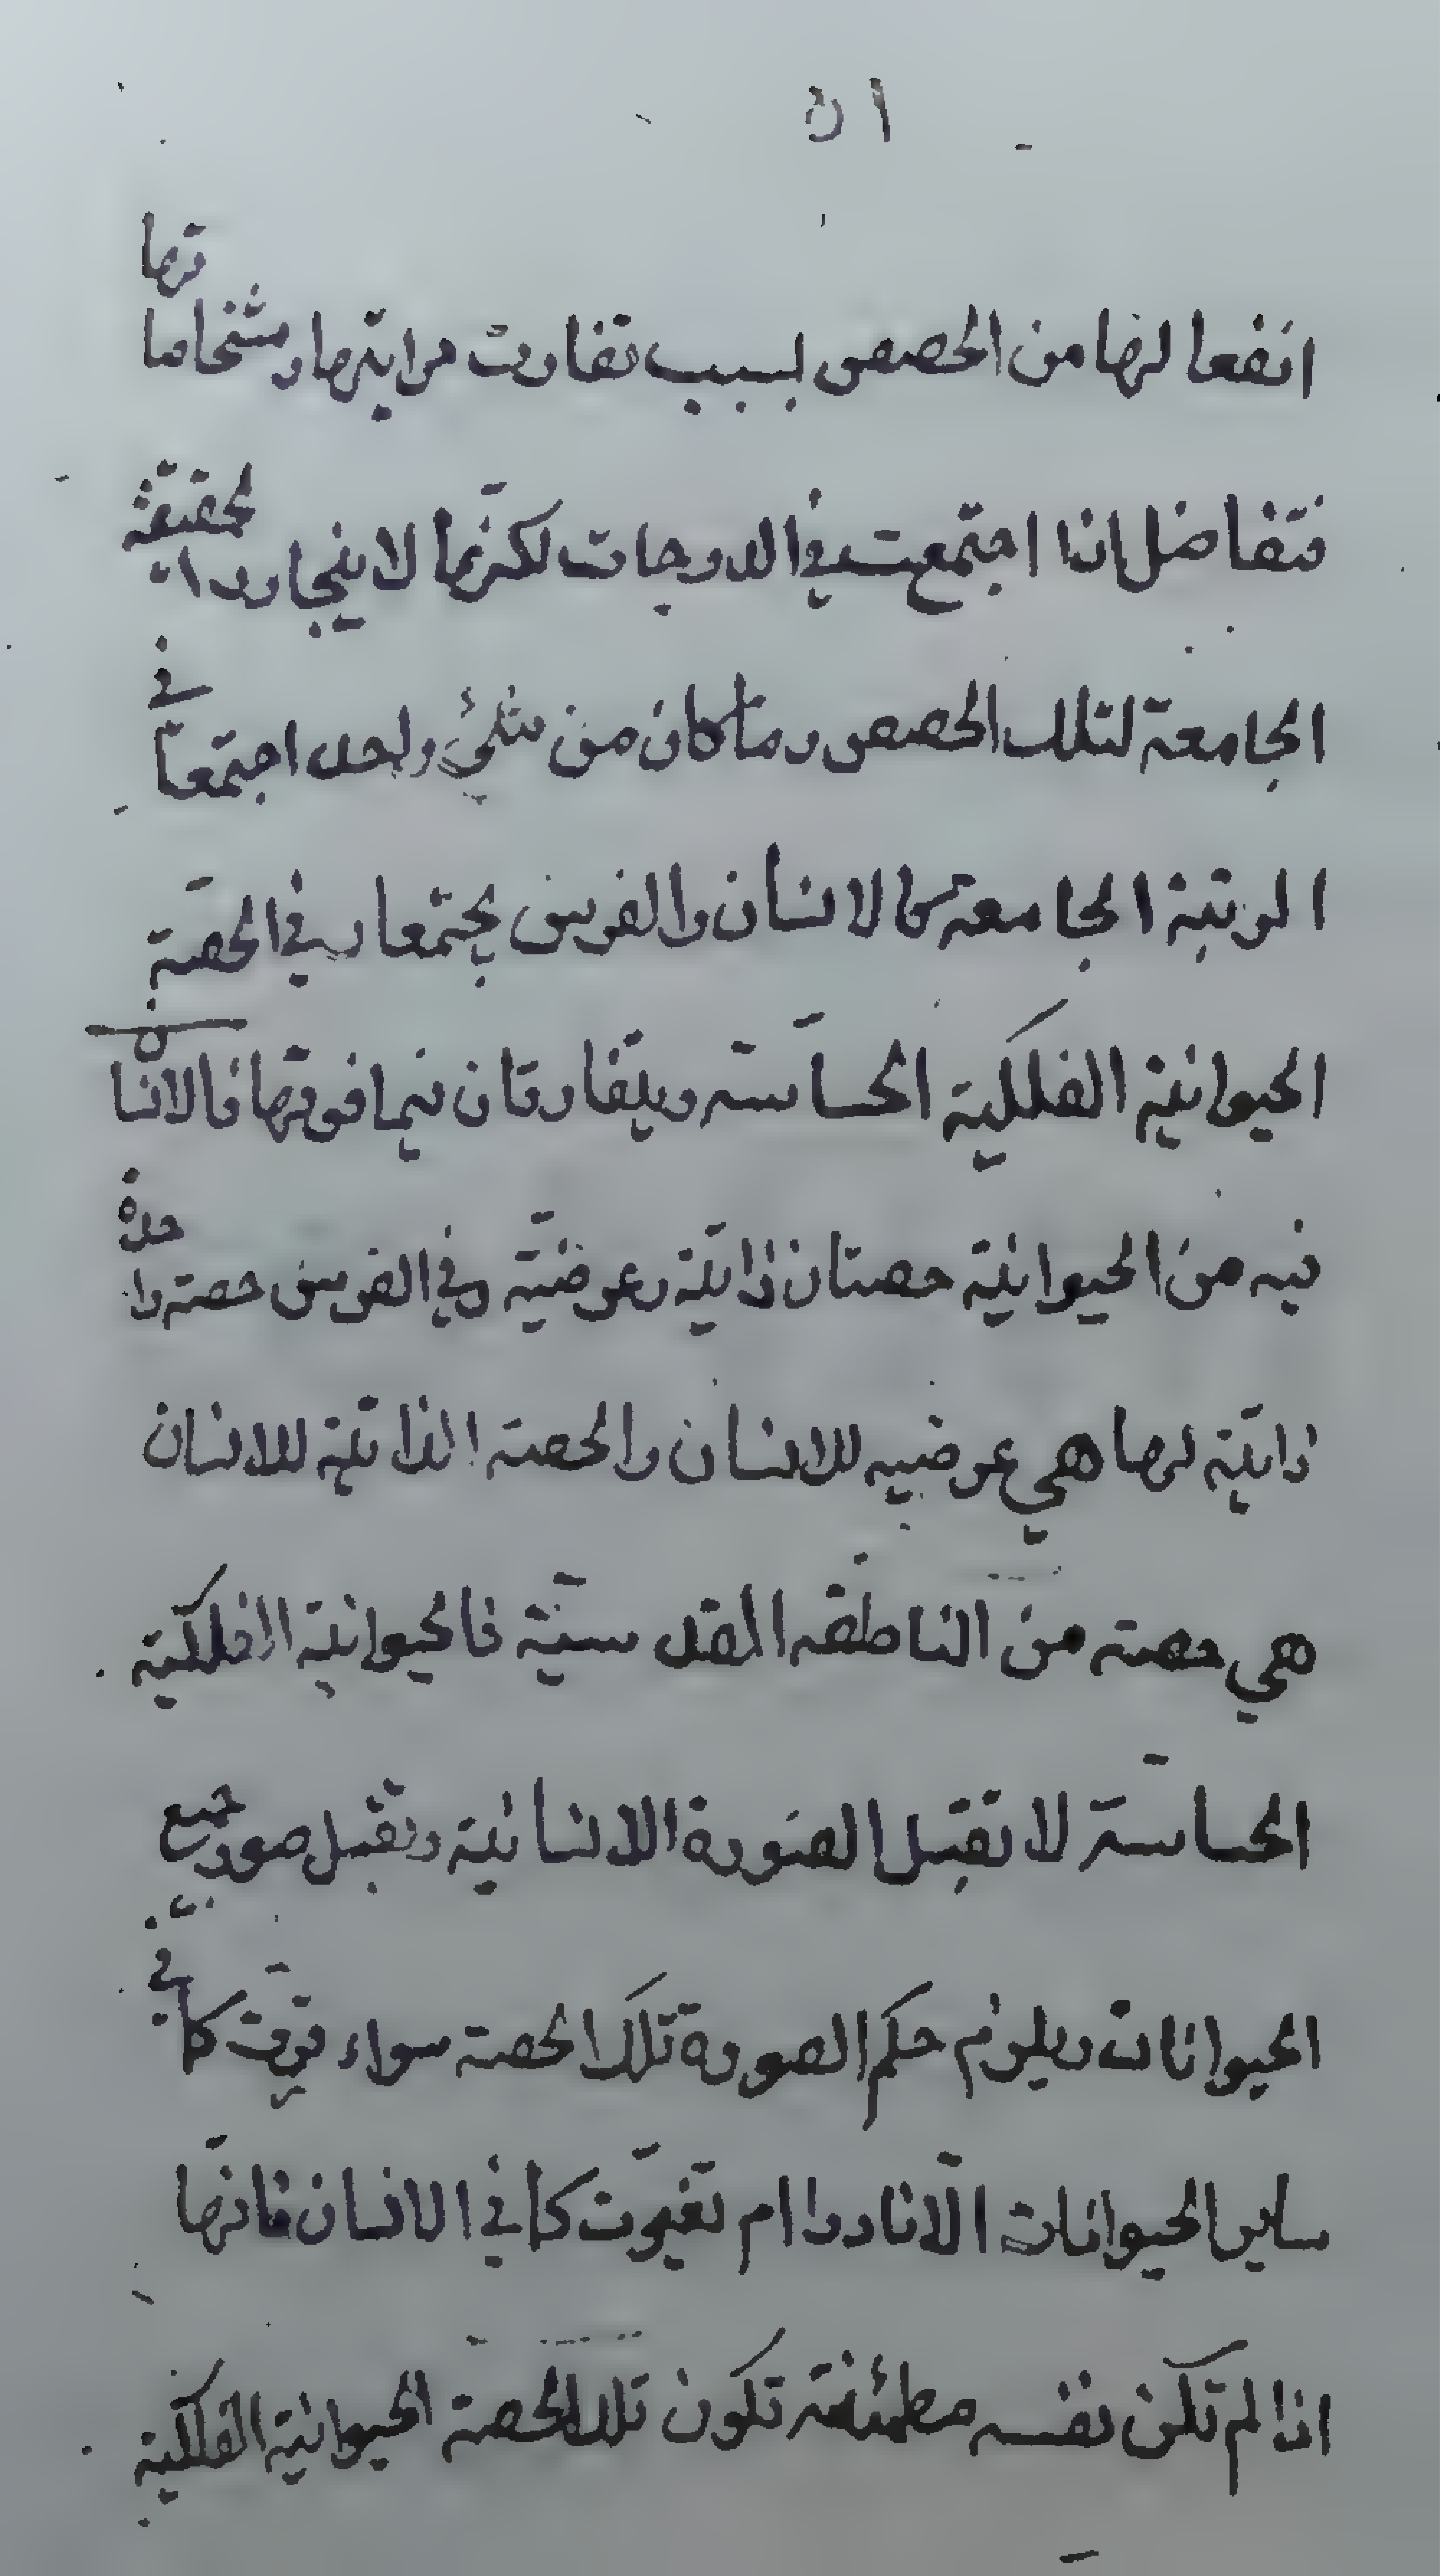 ٥١
انفعالها من الحصص بسبب تفاوت مراتبها ومشخصاتها
فتفاضل اذا اجتمعت في الدرجات لكنّها لا يتجاوز الحقيقة
الجامعة لتلك الحصص وما كان من شيئ واحد اجتمعا في
الرتبة الجامعة كالانسان والفرس يجتمعان في الحصّة
الحيوانية الفلكية الحسّاسة ويتفارقان فيما فوقها فالانسان
فيه من الحيوانيّة حصتان ذاتيّة وعرضيّة وفي الفرس حصة واحدة
ذاتيّة لها هي عرضيه للانسان والحصة الذاتيّة للانسان
هي حصة من الناطقه القدسيّة فالحيوانية الفلكية
الحساسة لا تقبل الصّورة الانسانيّة وتقبل صور جميع
الحيوانات ويلزم حكم الصورة تلك الحصة سواء بقيت كما في
ساير الحيوانات الّا نادرا ام تغيّرت كما في الانسان فانّها
اذا لم تكن نفسه مطمئنة تكون تلك الحصة الحيوانية الفلكية